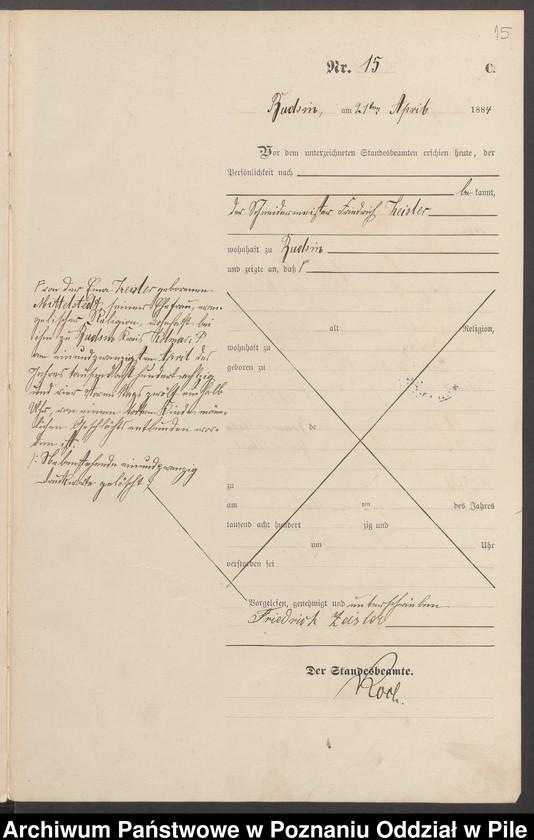 15
Nr. 15 C.
Budsin, am 21ten April 1884
Vor dem unterzeichneten Standesbeamten erschien heute, der
Persönlichkeit nach
be kannt,
der Schneidermeister Friedrich Zeisler
wohnhaft zu Budsin
und zeigte an, daß
von der Zeisler geborenen
Mittelstedt, seiner Ehefrau, evan-
gelischer Religion, wohnhaft bei
ihm zu Budsin Kreis Kolmar i. P.
am einundzwanzigsten April des
Jahres tausend acht hundert achtzig
und vier Vormittags zwölf einhalb
Uhr, von einem todten Kinde männ-
lichen Geschlechts entbunden wor-
den ist.
Nebenstehende einundzwanzig
Druckworte gelöscht
alt Religion,
wohnhaft zu
geboren zu
de
zu
am ten des Jahres
tausend acht hundert zig und
um Uhr
verstorben sei
Vorgelesen, genehmigt und unterschrieben
Friedrich Zeisler
Der Standesbeamte.
Koch.
Archiwum Państwowe w Poznaniu Oddział w Pile